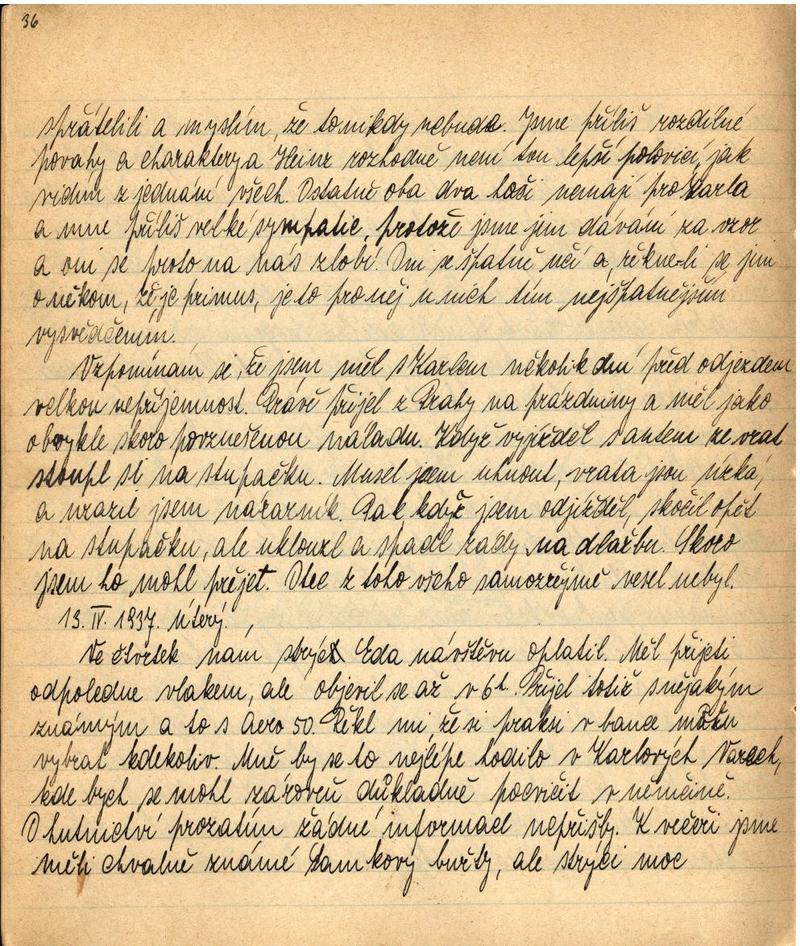 36
spřátelili a myslím, že to nikdy nebude. Jsme příliš rozdílné
povahy a charaktery a Heinz rozhodně není tou lepší polovicí, jak
vidím z jednání všech. Ostatně oba dva hoši nemají pro Karla
a mne příliš velké sympatie, protože jsme jim dáváni za vzor
a oni se proto na nás zlobí. Oni se špatně učí a, řekne-li se jim
o někom, že je primus, je to pro něj u nich tím nejšpatnějším
vysvědčením.
Vzpomínám si, že jsem měl s Karlem několik dní před odjezdem
velkou nepříjemnost. Právě přijel z Prahy na prázdniny a měl jako
obvykle skoro povznešenou náladu. Když vyjížděl s autem ze vrat
stoupl si na stupačku. Musel jsem uhnout, vrata jsou úzká,
a urazil jsem nárazník. Pak, když jsem odjížděl, skočil opět
na stupačku, ale uklouzl a spadl zády na dlažbu. Skoro
jsem ho mohl přejet. Otec z toho všeho samozřejmě vesel nebyl.
13. IV. 1937. úterý.
Ve čtvrtek nám strýc Eda návštěvu oplatil. Měl přijeti
odpoledne vlakem, ale objevil se až v 6h. Přijel totiž s nějakým
známým a to s Aero 50. Řekl mi, že si praksi v bance můžu
vybrat kdekoliv. Mně by se to nejlépe hodilo v Karlových Varech,
kde bych se mohl zároveň důkladně pocvičit v němčině.
O hutnictví prozatím žádné informace nepřišly. K večeři jsme
měli chvalně známé buřty, ale strýci moc